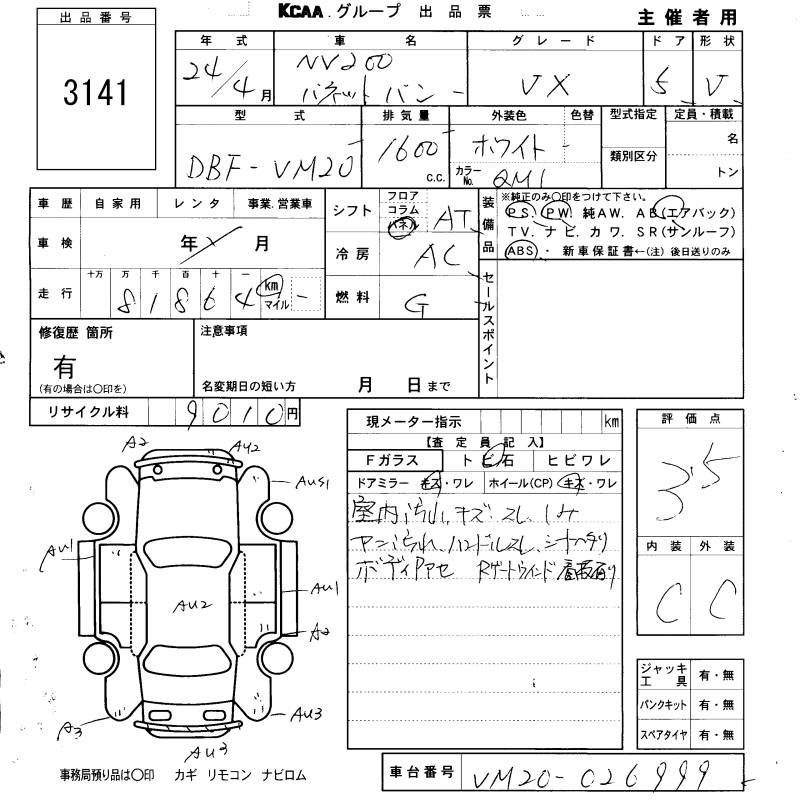 KCAA グループ 出品票
主催者用
出品番号
3141
年式 車名 グレード ドア 形状
24/4月 NV200 バネットバン VX 5 V
型式 排気量 外装色 色替 型式指定 定員・積載
DBF-VM20 1600 c.c. ホワイト カラーNo. QM1 類別区分 名 トン
車歴 自家用 レンタ 事業.営業車
車検 年 月
走行 十万 万 千 百 十 一
81864 km マイル
シフト フロア コラム パネル AT
冷房 AC
燃料 G
装備品
※純正のみ○印をつけて下さい。
PS. PW. 純AW. AB(エアバック)
TV. ナビ. カワ. SR(サンルーフ)
ABS・新車保証書←(注) 後日送りのみ
セールスポイント
修復歴 箇所
有
(有の場合は○印を)
注意事項
名変期日の短い方 月 日まで
リサイクル料 9010円
現メーター指示 km
【査定員記入】
Fガラス トビ石 ヒビワレ
ドアミラー キズ・ワレ ホイール(CP) キズ・ワレ
室内汚れ、キズ、スレ、しみ
ヤニ汚れ、ハンドルスレ、シートヘタリ
ボディPアセ Rゲートウインド
評価点
3.5
内装 外装
C C
ジャッキ工具 有・無
パンクキット 有・無
スペアタイヤ 有・無
A2 AU2
AUS1
AU1
AU2
AU1
A2
A3 AU3
AU3
事務局預り品は○印 カギ リモコン ナビロム
車台番号 VM20-026999